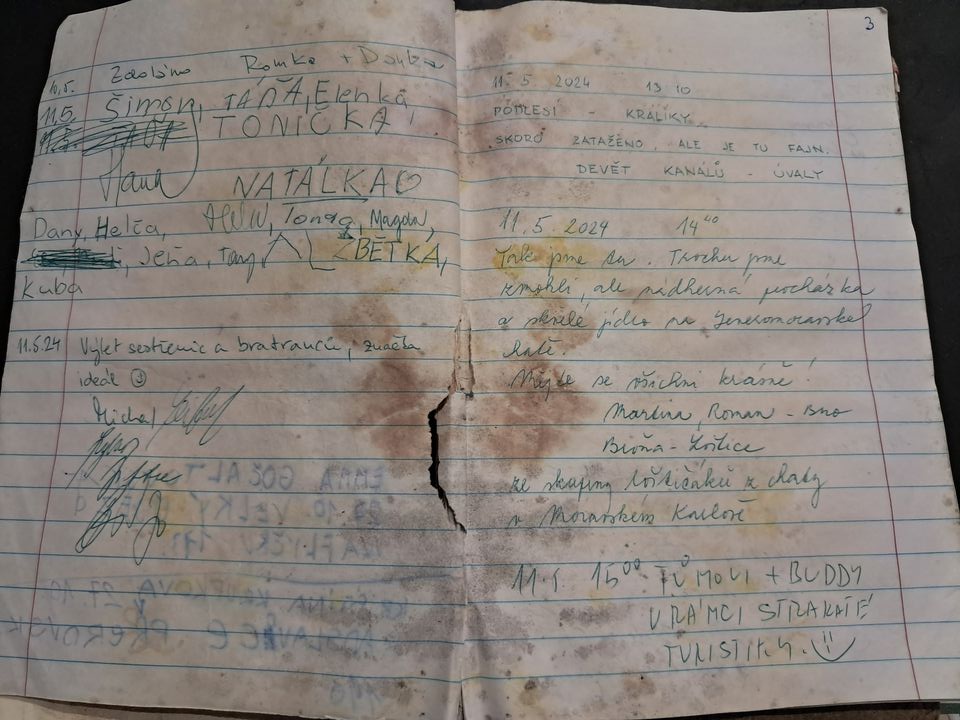 10.5. Zdobino Romka + Danka
11.5. Šimon, TÁŇA, Elenka
TONIČKA
Hana NATÁLKA
Dany, Helča, Tonda, Magda,
Jeňa, Tony ZBĚTKA,
Kuba
11.5.24 Výlet sestřenic a bratranců, značka
ideál ☺
Michal
3
11. 5. 2024 13 10
PODLESÍ - KRÁLÍKY.
SKORO ZATAŽENO, ALE JE TU FAJN.
DEVĚT KANÁLŮ - ÚVALY
11. 5. 2024 14 40
Tak jsme tu. Trochu jsme
zmokli, ale nádherná procházka
a skvělé jídlo na Severomoravské
chatě.
Mějte se všichni krásně!
Martina, Roman - Brno
Broňa - Loštice
ze skupiny loštičáků z chaty
v Moravském Karlově
11.5. 15 00 TŮMOVI + BUDDY
V RÁMCI STRAKATÉ
TURISTIKY.
EMMA GOČALT
VELKÝ